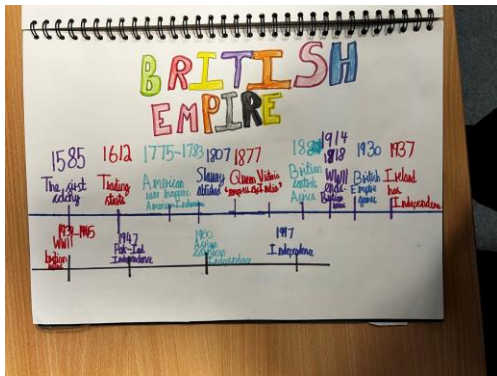 BRITISH
EMPIRE
1585
The first
colony
1612
Trading
starts
1775-1783
American
war
1807
Slavery
abolished
1877
Queen Victoria
"empress of India"
Britian
controls
Africa
1914
1918
WWI
ends
1930
British
Empire
games
1937
Ireland
has
Independence
1939-1945
WWII
1947
Independence
1960
Independence
1997
Independence